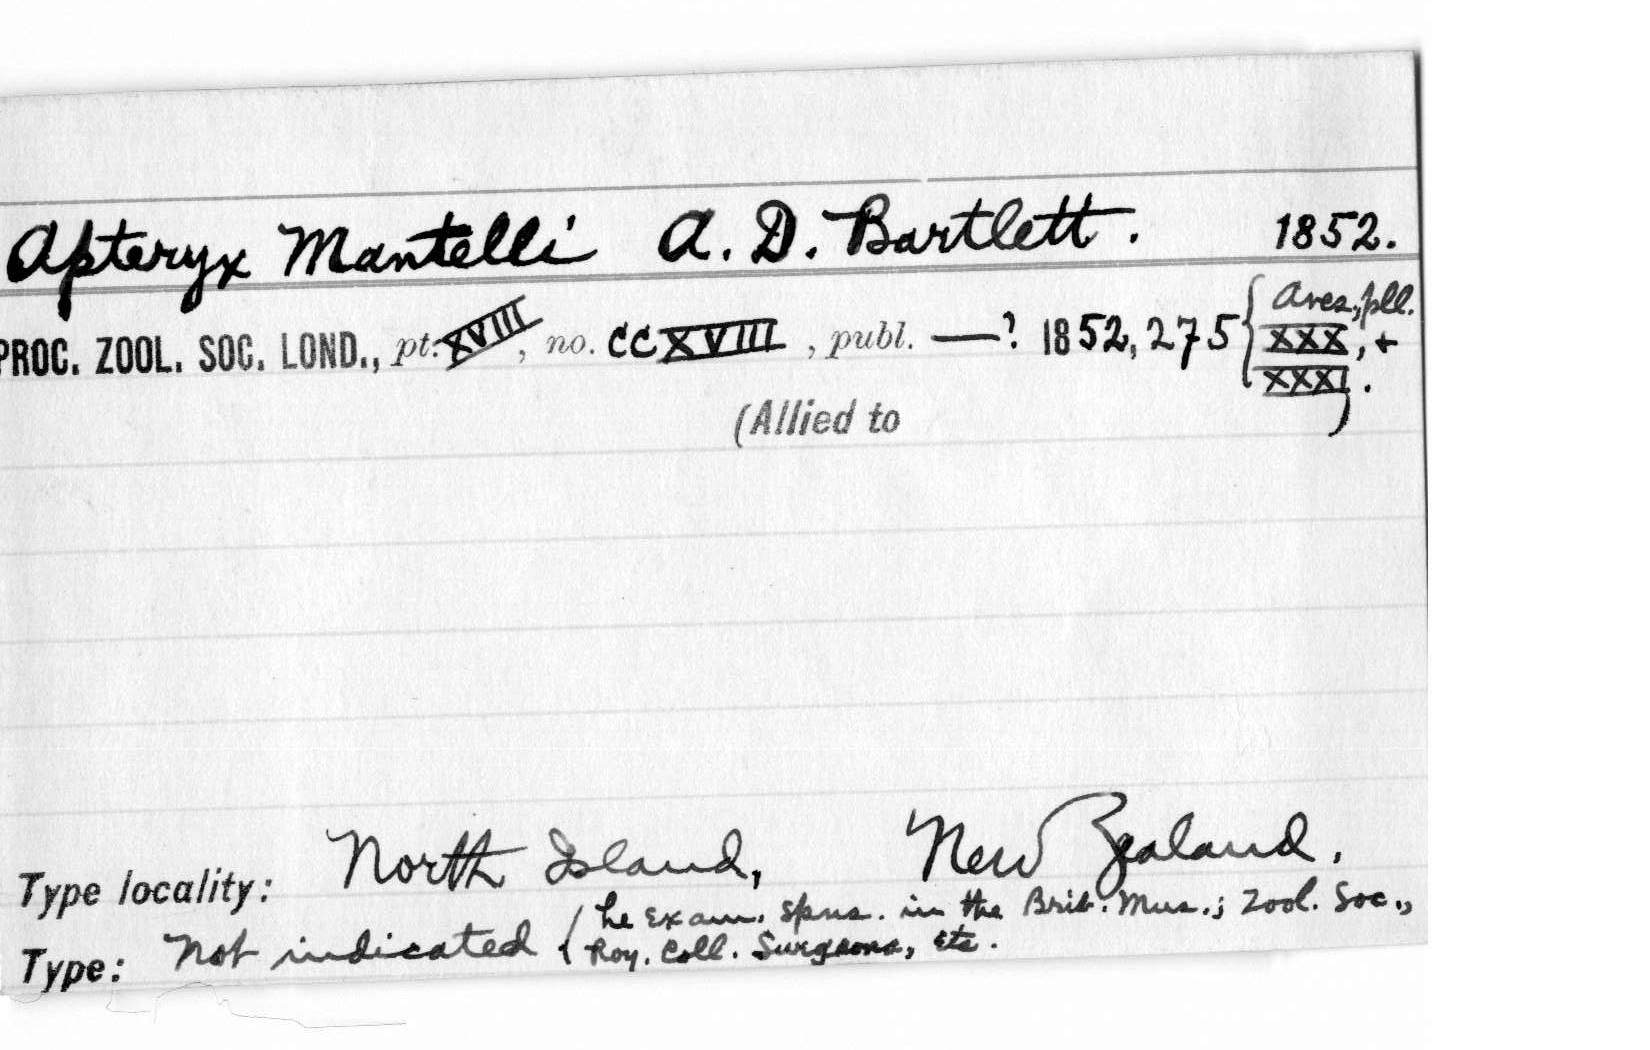 Apteryx Mantelli A. D. Bartlett. 1852.
PROC. ZOOL. SOC. LOND., pt. XVIII, no. CCXVIII, publ. —? 1852, 275 { Aves, pll. XXX, + XXXI.
(Allied to )
Type locality: North Island, New Zealand.
Type: Not indicated ( he exam. spns. in the Brit. Mus.; Zool. Soc.,
Roy. Coll. Surgeons, etc.